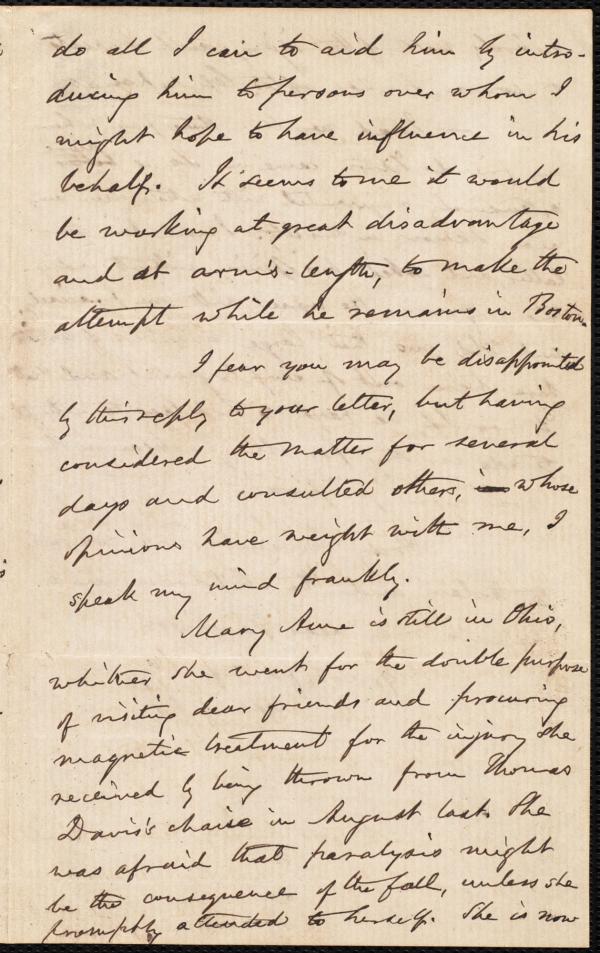 do all I can to aid him by intro-
ducing him to persons over whom I
might hope to have influence in his
behalf. It seems to me it would
be working at great disadvantage
and at arm's-length, to make the
attempt while he remains in Boston.
I fear you may be disappointed
by this reply to your letter, but having
considered the matter for several
days and consulted others, whose
opinions have weight with me, I
speak my mind frankly.
Mary Anne is still in Ohio,
whither she went for the double purpose
of visiting dear friends and procuring
magnetic treatment for the injury she
received by being thrown from Thomas
Davis's chaise in August last. She
was afraid that paralysis might
be the consequence of the fall, unless she
promptly attended to herself. She is now